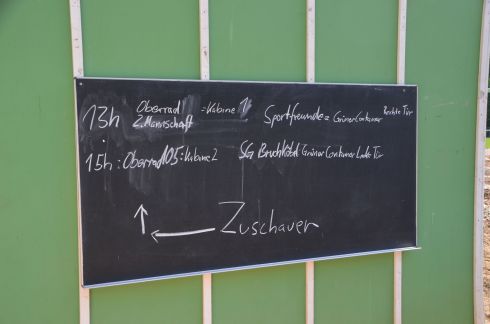 13h Oberrad 2. Mannschaft = Kabine 1 Sportfreunde = Grüner Container Rechte Tür
15h: Oberrad 05: Kabine 2 SG Bruchköbel Grüner Container Linke Tür
Zuschauer